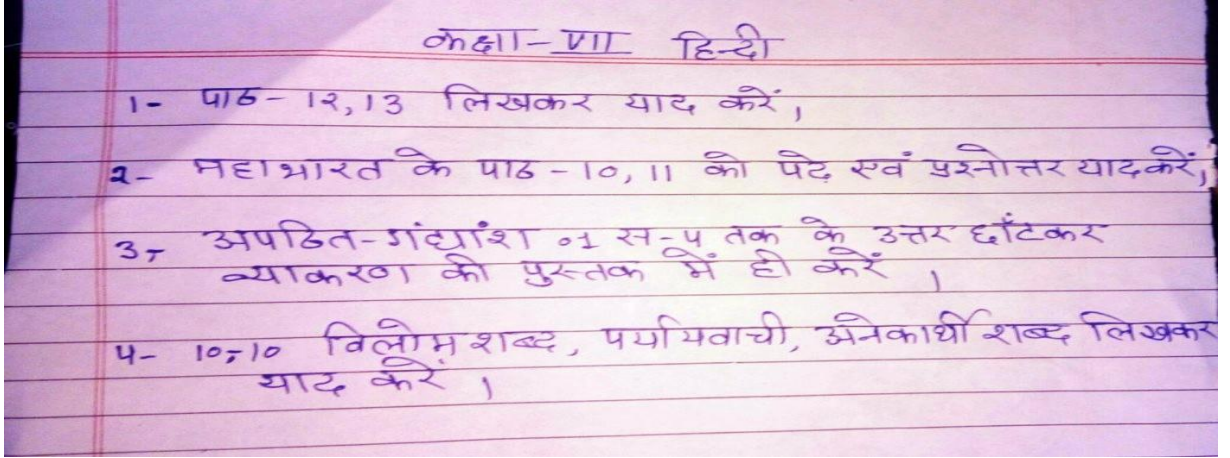 कक्षा-VII हिन्दी
1- पाठ-12,13 लिखकर याद करें,
2- महाभारत के पाठ-10,11 को पढे़ एवं प्रश्नोत्तर याद करें,
3- अपठित-गंद्यांश 01 स-५ तक के उत्तर छाँटकर
व्याकरण की पुस्तक में ही करें ।
५- 10-10 विलोम शब्द, पर्यायवाची, अनेकार्थी शब्द लिखकर
याद करें ।